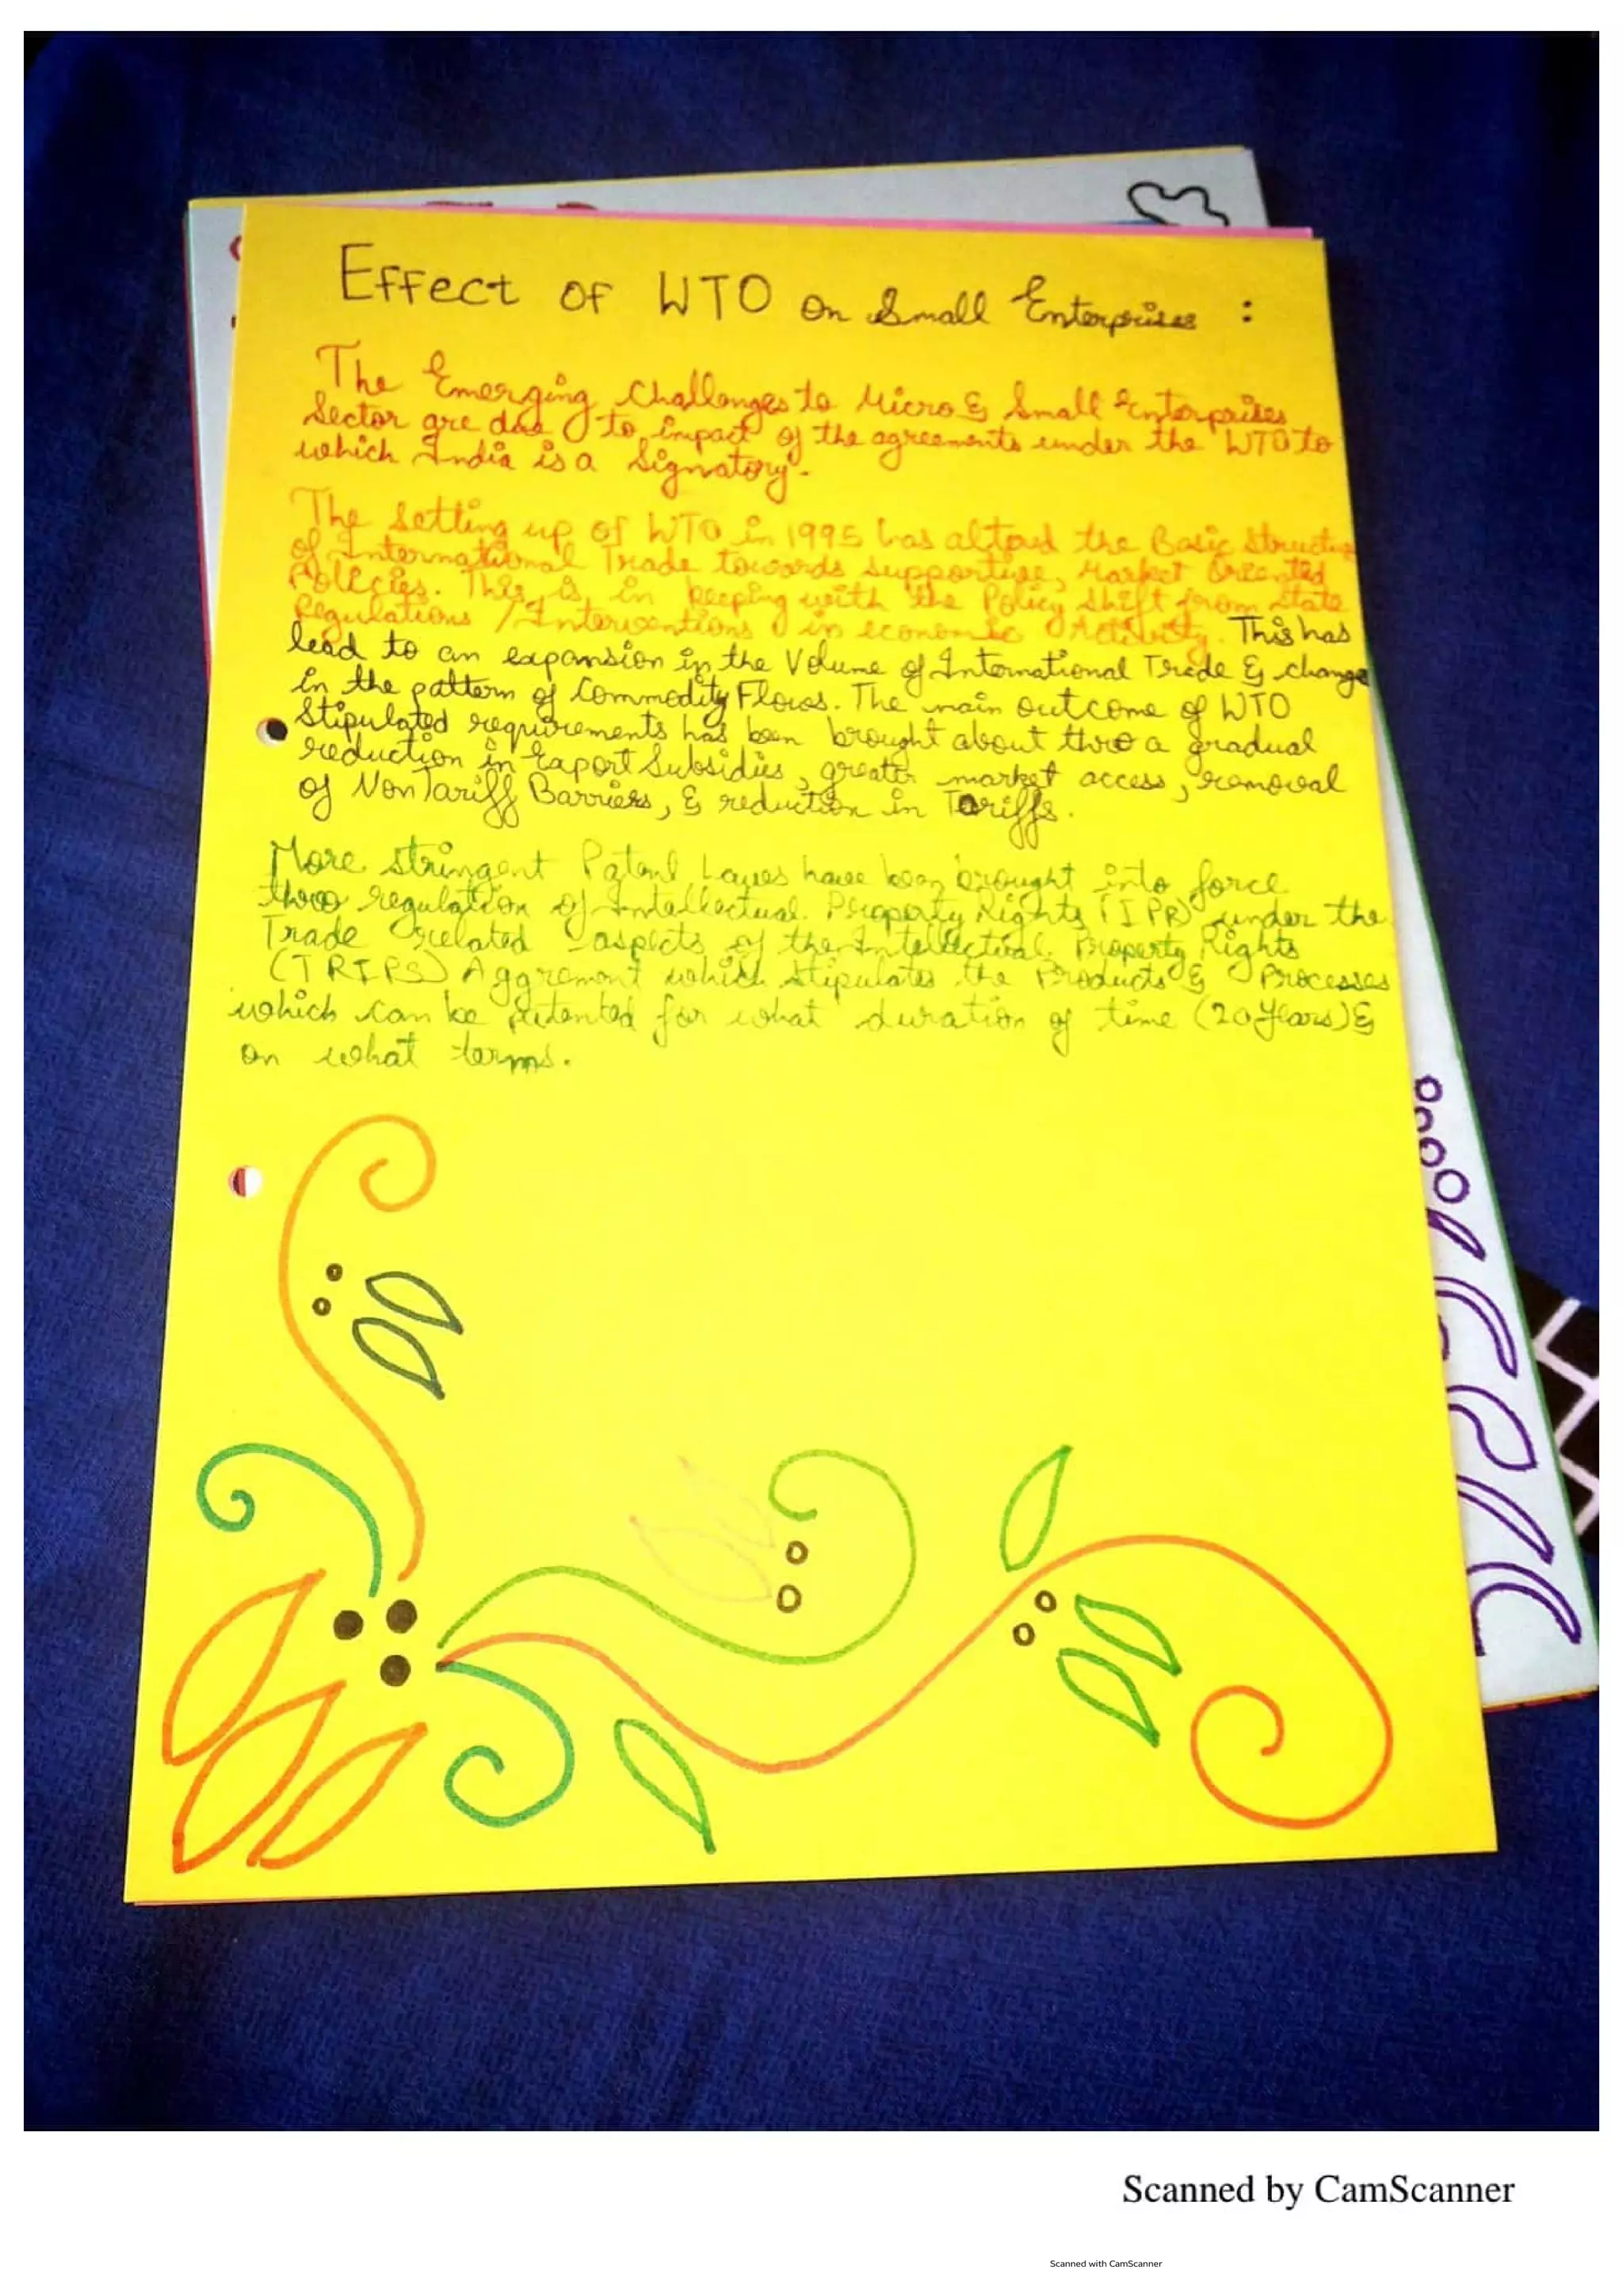 Effect of WTO on Small Enterprises :
The Emerging Challenges to Micro & Small Enterprises
Sector are due to impact of the agreements under the WTO to
which India is a Signatory.
The Setting up of WTO in 1995 has altered the Basic Structure
of International Trade towards supportive, Market Oriented
Policies. This is in keeping with the Policy Shift from State
Regulations / Interventions in economic Activity. This has
lead to an expansion in the Volume of International Trade & change
in the pattern of Commodity Flows. The main outcome of WTO
Stipulated requirements has been brought about thro a gradual
reduction in Export Subsidies, greater market access, removal
of Non Tariff Barriers, & reduction in Tariffs.
More stringent Patent Laws have been brought into force
thro regulation of Intellectual Property Rights (IPR) under the
Trade related aspects of the Intellectual Property Rights
(TRIPS) Aggrement which stipulates the Products & Processes
which can be patented for what duration of time (20 Years) &
on what terms.
Scanned by CamScanner
Scanned with CamScanner